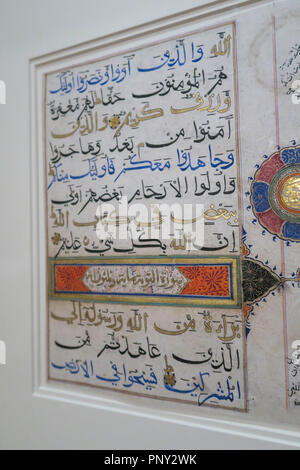 الله والذين آووا ونصروا اوليك
هم المؤمنون حقا لهم مغفرة
ورزق كريم والذين
آمنوا من بعد وهاجروا
وجاهدوا معكم فاوليك منكم
واولوا الارحام بعضهم اولى
ببعض في كتاب الله
ان الله بكل شيء عليم
سورة التوبة مائة
براءة من الله ورسوله الى
الذين عاهدتم من
المشركين فسيحوا في الارض
alamy stock photo
PNY2WK